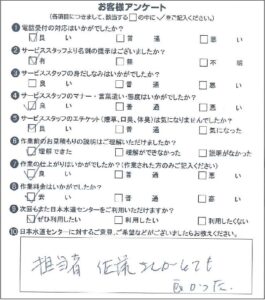 お客様アンケート
(各項目につきまして、該当する□の中に✓をご記入ください。)
❶電話受付の対応はいかがでしたか?
☑良い □普通 □悪い
❷サービススタッフより名刺の提示はございましたか?
☑有 □無 □不明
❸サービススタッフの身だしなみはいかがでしたか?
☑良い □普通 □悪い
❹サービススタッフのマナー・言葉遣い・態度はいかがでしたか?
☑良い □普通 □悪い
❺サービススタッフのエチケット(煙草、口臭、体臭)は気になりませんでしたか?
☑良い □普通 □気になった
❻作業前のお見積もりの説明はご理解いただけましたか?
☑理解できた □理解ができなかった □説明がなかった
❼作業の仕上がりはいかがでしたか?(作業された方のみご記入ください)
☑良い □普通 □悪い
❽作業料金はいかがでしたか?
☑安い □普通 □高い
❾次回もまた日本水道センターをご利用いただけますか?
☑ぜひ利用したい □利用したい □利用したくない
❿日本水道センターに対するご意見、ご希望などがございましたらお教えください。
担当者 佐藤さん とても
良かった.